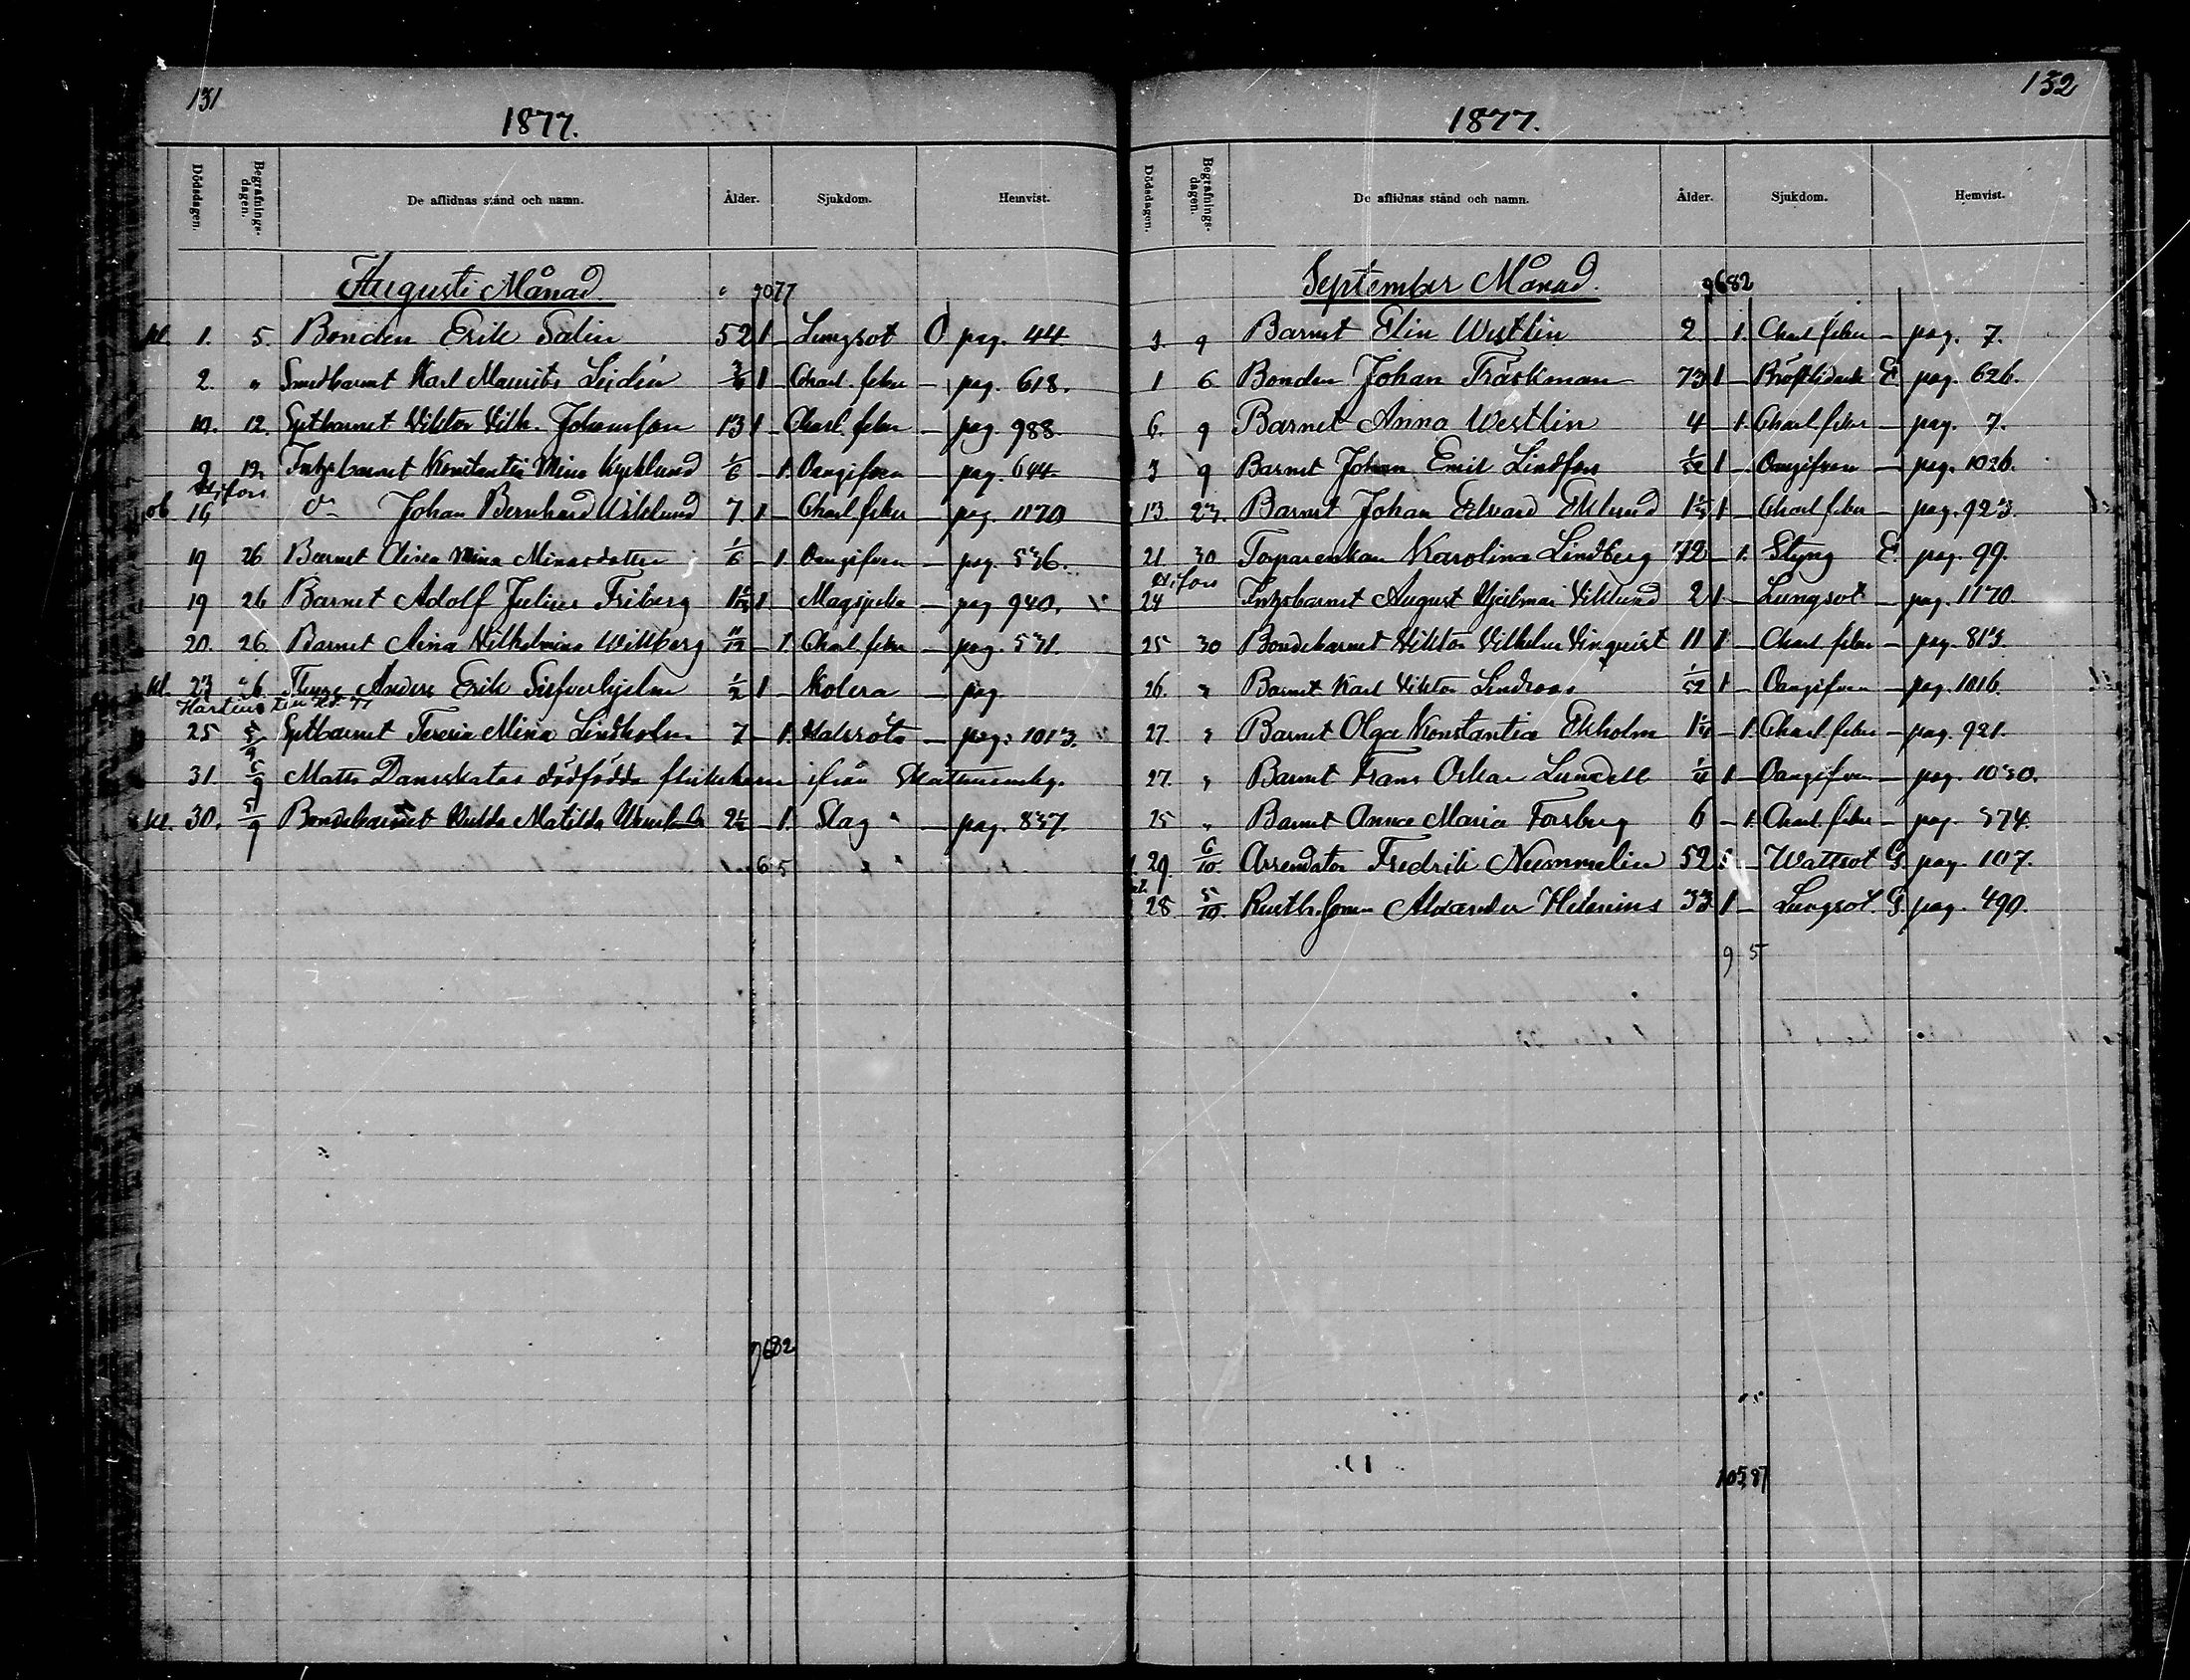 131
1877.
Dödsdagen. Begrafnings-dagen. De aflidnas stånd och namn. Ålder. Sjukdom. Hemvist.
Augusti Månad 9077
1. 5. Bonden Erik Salin 52 1 – Lungsot O pag. 44
2. " Smedbarnet Karl Maurits Lidén 1 Charl. feber – pag. 618.
10. 12. Sytbarnet Viktor Vilh. Johansson 13 1 – Charl. feber – pag. 988.
9 12 Konstantia Mina 1/6 – 1. Oangifven – pag. 644
16 dn Johan Bernhard Wiklund 7 1 – Charl. feber – pag. 1170
19 26 Barnet Mina Minasdotter 1/6 – 1. Oangifven – pag. 536.
19 26 Barnet Adolf Julius Friberg 1 – – pag 940.
20. 26. Barnet Aina Vilhelmina Willberg 11/12 – 1. Charl. feber – pag. 531.
23 26. Anders Erik Silfverhjelm 1/2 1 – Kolera – pag
25 5/9 Sytbarnet Teresia Mina Lindholm 7 – 1. Halsröta – pag. 1013.
31. 6/9 Matts Dansskatas dödfödda flickebarn ifrån
30. 5/9 Bondebarnet Hulda Matilda 2½ – 1. Slag – pag. 837.
6 5
9682
132
1877.
Dödsdagen. Begrafnings-dagen. De aflidnas stånd och namn. Ålder. Sjukdom. Hemvist.
September Månad. 9682
3. 9 Barnet Elin Westlin 2 – 1. Charl. feber – pag. 7.
1 6 Bonden Johan Träskman 73 1 – Bröstlidande E pag. 626.
6. 9 Barnet Anna Westlin 4 – 1. Charl. feber – pag. 7.
3 9 Barnet Johan Emil Lindfors 1/52 1 – Oangifven – pag. 1026.
13. 23. Barnet Johan Edvard Eklund 1 – Charl. feber – pag. 923.
21. 30 Torparenkan Karolina Lindberg 72 – 1. Styng E pag. 99.
24 August Hjalmar Viklund 2 1 – Lungsot – pag. 1170.
25 30 Bondebarnet Viktor Vilhelm Linqvist 11 1 – Charl. feber – pag. 813.
26. " Barnet Karl Viktor Lindroos 1/52 1 – Oangifven – pag. 1016.
27. " Barnet Olga Konstantia Ekholm – 1. Charl. feber – pag. 921.
27. " Barnet Frans Oskar Lundell 1 – Oangifven – pag. 1030.
25 " Barnet Anna Maria Forsberg 6 – 1. Charl. feber – pag. 574.
29. 6/10. Arrendator Fredrik Nummelin 52 1 – Wattsot G. pag. 107.
28. 5/10. Alexander Helenius 33 1 – Lungsot. G. pag. 490.
9 5
10587